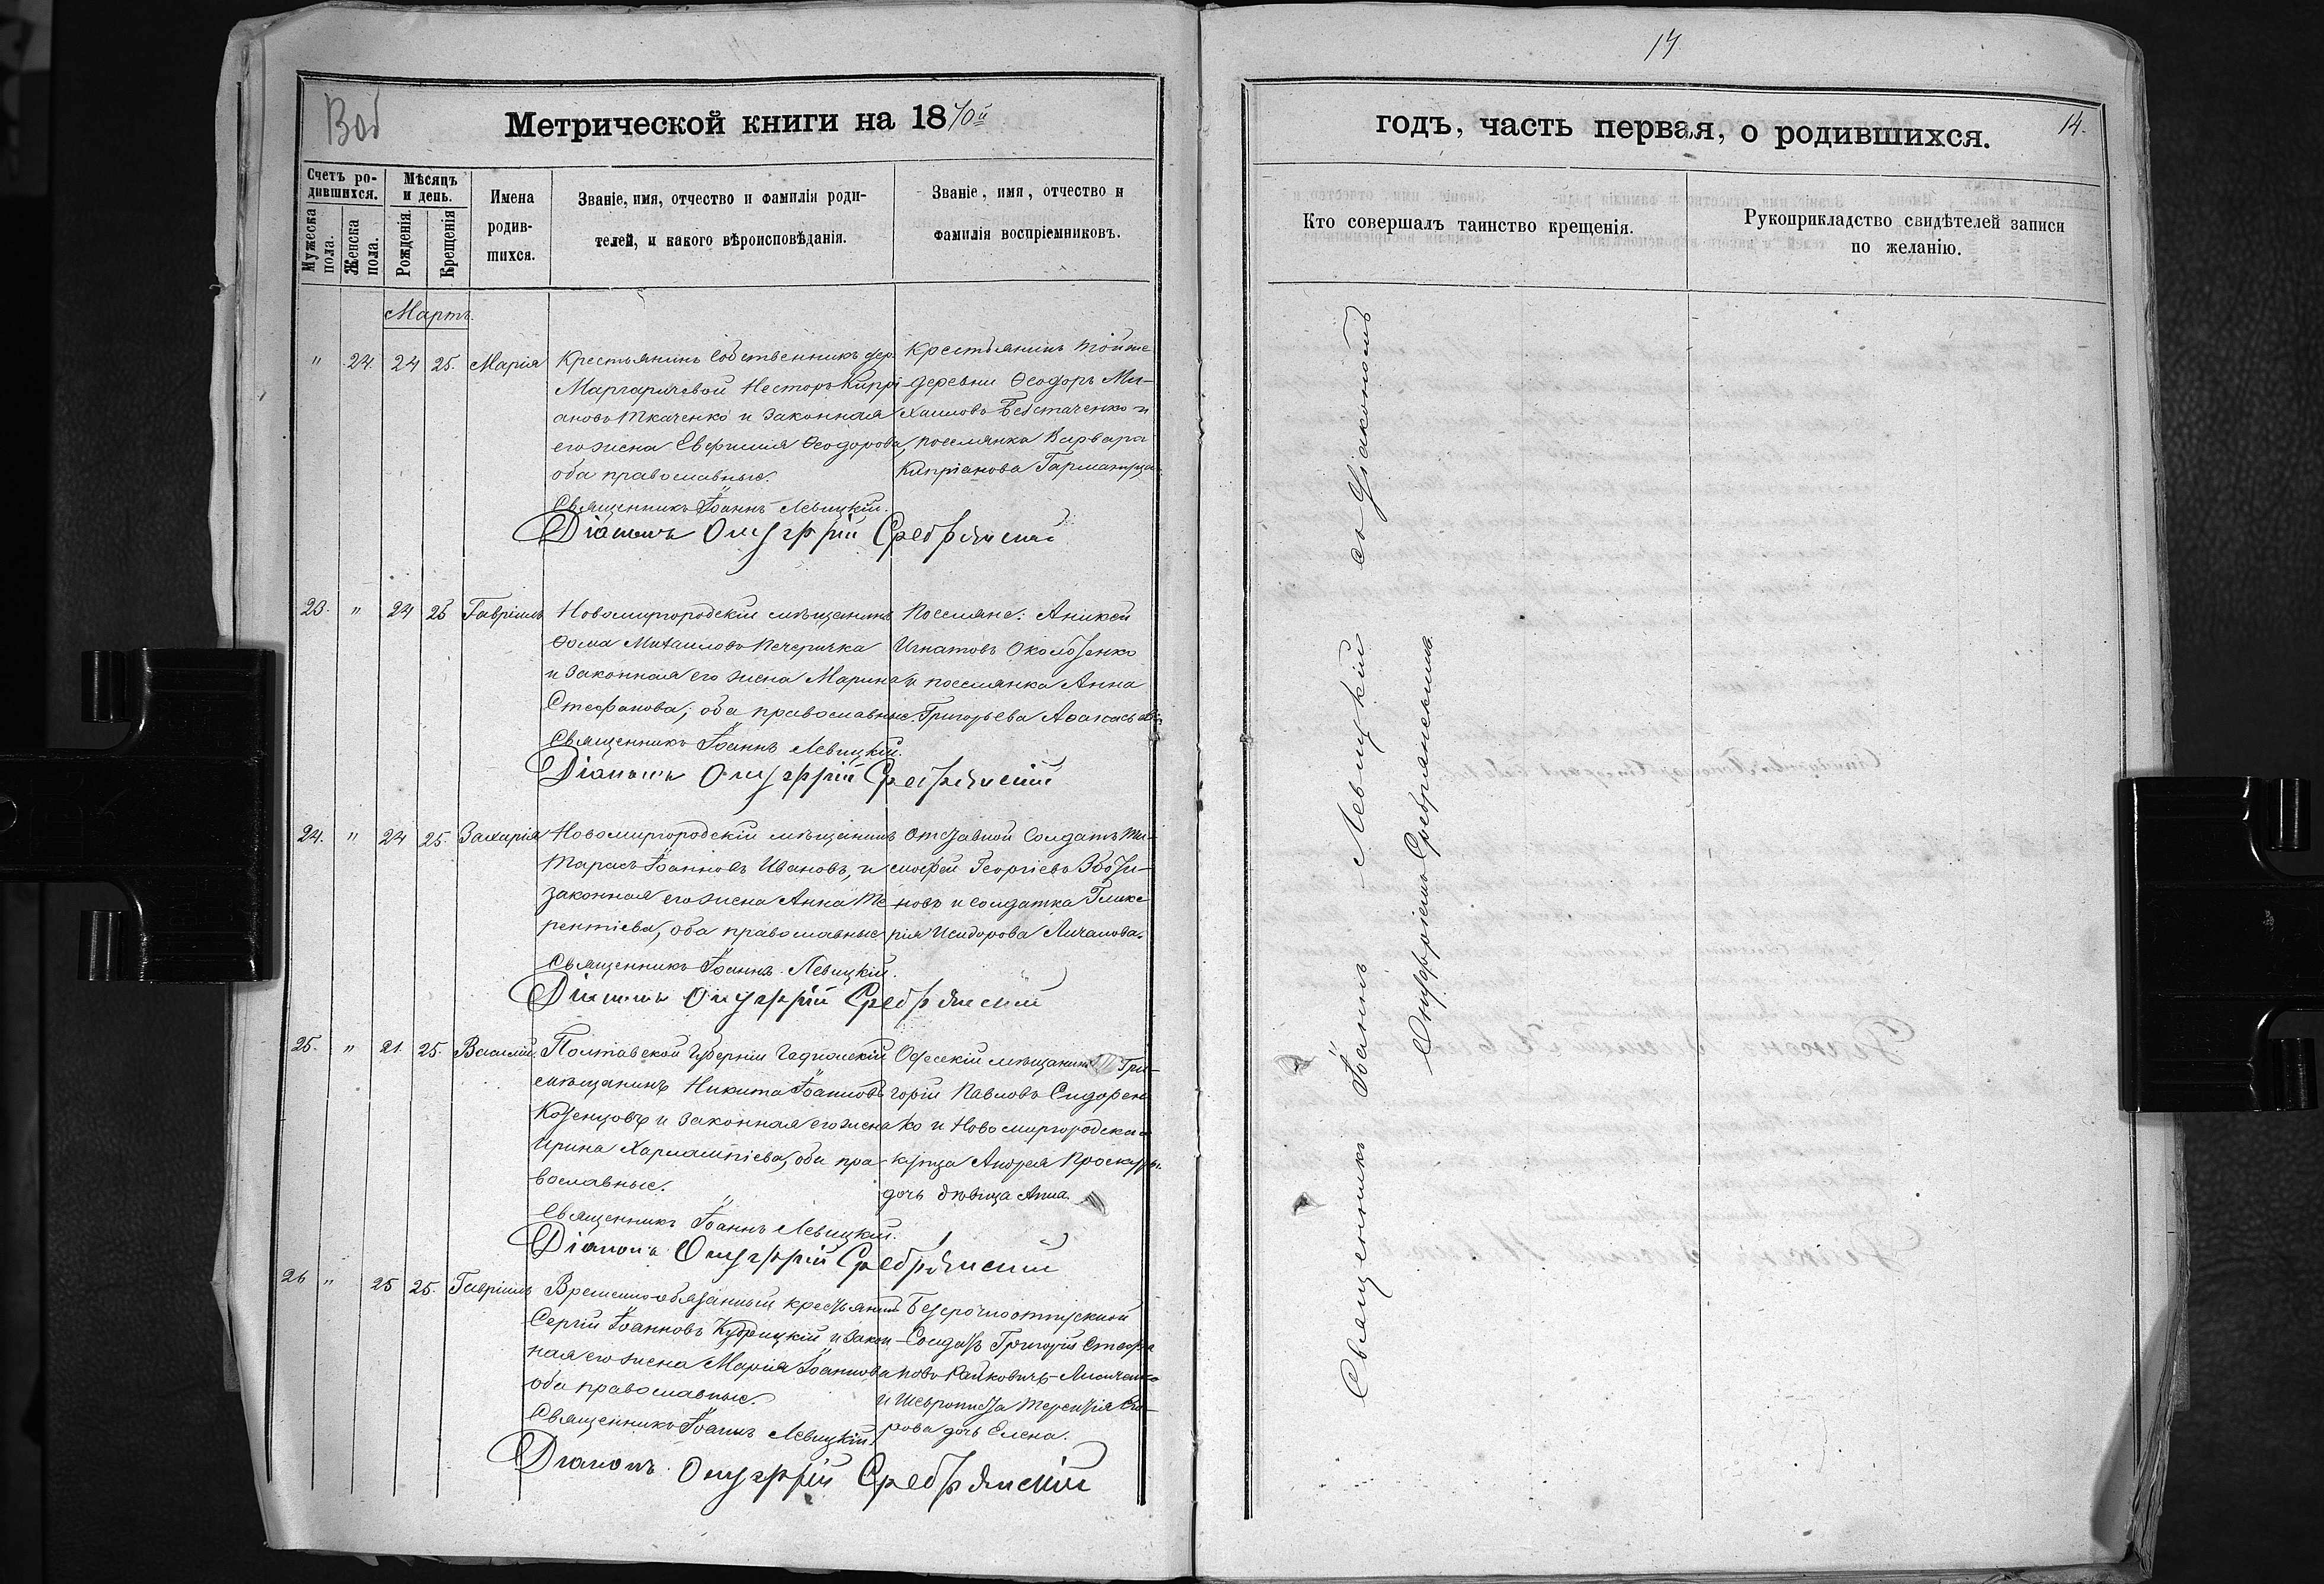 Метрической книги на 1870й
Счетъ ро-
дившихся.
Мѣсяцъ
и день.
Мужеска
пола.
Женска
пола.
Рожденія.
Крещенія
Имена
родив-
шихся.
Званіе, имя, отчество и фамилія роди-
телей, и какого вѣроисповѣданія.
Званіе, имя, отчество и
фамилія воспріемниковъ.
Мартъ.
" 24. 24 25. Марія
Крестьянинъ собственникъ дер.
Маргаричевой Несторъ Кипрі-
ановъ Ткаченко и законная
его жена Евфимія Ѳеодорова,
оба православные.
Крестьянинъ тойже
деревни Ѳеодоръ Ми-
хаиловъ и
поселянка Варвара
Кипріанова
Священникъ Іоаннъ Левицкій.
Діаконъ Онуфрій Сребрянскій
23. " 24 25 Гавріилъ
Новомиргородскій мѣщанинъ
Ѳома Михаиловъ Печеричка
и законная его жена Марина
Стефанова; оба православные.
Поселяне: Аникей
Игнатовъ
и поселянка Анна
Григорьева
Священникъ Іоаннъ Левицкій.
Діаконъ Онуфрій Сребрянскій
24. " 24 25. Захарія
Новомиргородскій мѣщанинъ
Тарасъ Іоанновъ Ивановъ, и
законная его жена Анна Те-
рентіева, оба православные
Отставной Солдатъ Ти-
моѳей Георгіевъ
новъ и солдатка Глике-
рия Исидорова
Священникъ Іоаннъ Левицкій.
Діаконъ Онуфрій Сребрянскій
25. " 21. 25. Василій.
Полтавской Губерніи Гадячскій
мѣщанинъ Никита Іоанновъ
и законная его жена
Ирина Харлампіева, оба пра-
вославные.
Одесскій мѣщанинъ Гри-
горій Павловъ Сидорен-
ко и Новомиргородскаго
купца Андрея
дочь дѣвица Анна.
Священникъ Іоаннъ Левицкій.
Діаконъ Онуфрій Сребрянскій
26 " 25 25. Гавріилъ
Временно-обязанный крестьянинъ
Сергій Іоанновъ и закон-
ная его жена Марія Іоаннова
оба православные.
Безсрочноотпускной
Солдатъ Григорій Стефа-
новъ
и Терентія
дочь Елена.
Священникъ Іоаннъ Левицкій.
Діаконъ Онуфрій Сребрянскій
14
годъ, часть первая, о родившихся.
14.
Кто совершалъ таинство крещенія.
Рукоприкладство свидѣтелей записи
по желанію.
Священникъ Іоаннъ Левицкій съ Діакономъ
Онуфріемъ Сребрянскимъ